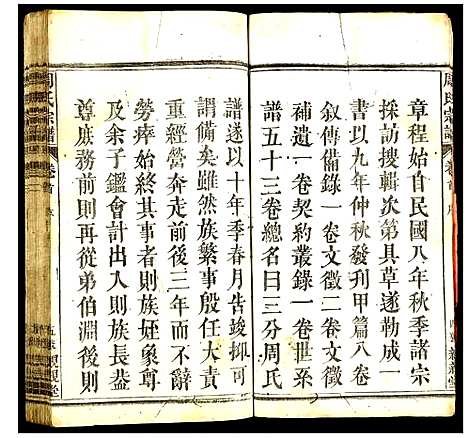 章程始自民國八年秋季諸宗
採訪搜輯次第具草遂勒成一
書以九年仲秋發刋甲篇八卷
叙傳備錄一卷文徵二卷文徵
補遺一卷契約叢錄一卷世系
譜五十三卷總名曰三分周氏
譜遂以十年季春月告竣抑可
謂備矣雖然族繁事殷任大責
重經營奔走前後三年而不辭
勞瘁始終其事者則族姪象尊
及余子鑑會計出入則族長恭
尊庶務前則再從弟伯淵後則
周氏宗譜
卷首